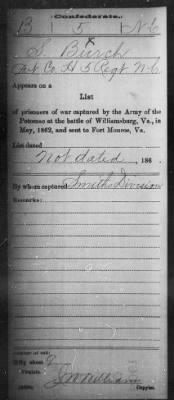 Confederate.
B 5 N.C.
S. Burch
Pvt Co. H 5 Regt N.C.
Appears on a
List
of prisoners of war captured by the Army of the
Potomac at the battle of Williamsburg, Va., in
May, 1862, and sent to Fort Monroe, Va.
List dated
Not dated, 186 .
By whom captured Smith's Division
Remarks:
Copyist.